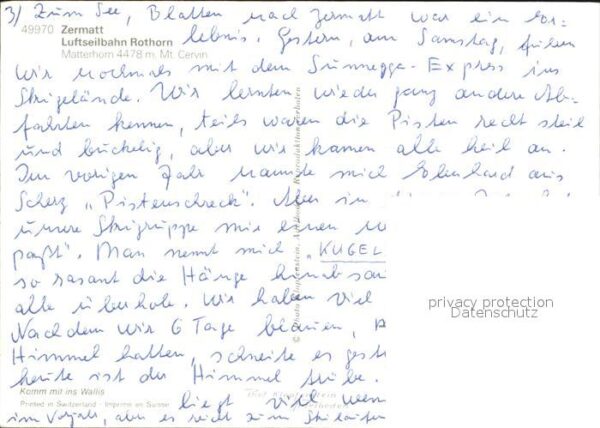 3) Zum See, Blatten nach Zermatt war ein Er-
49970 Zermatt
Luftseilbahn Rothorn
Matterhorn 4478 m, Mt. Cervin
lebnis. Gestern, am Samstag, fuhren
wir nochmals mit dem Sunnegga-Express ins
Skigelände. Wir lernten wieder ganz andere Ab-
fahrten kennen, teils waren die Pisten recht steil
und buckelig, aber wir kamen alle heil an.
Im vorigen Jahr nannte mich Ekkehard aus
Scherz „Pistenschreck". Aber in
unsere Skigruppe mir einen
paßt". Man nennt mich „KUGEL
so rasant die Hänge
alle überhole. Wir haben viel
Nachdem wir 6 Tage blauen,
Himmel hatten, schneite es
heute ist der Himmel trübe.
Komm mit ins Wallis
Printed in Switzerland - Imprimé en Suisse
liegt viel
im Vorjahr, aber es reicht zum Skilaufen
privacy protection
Datenschutz